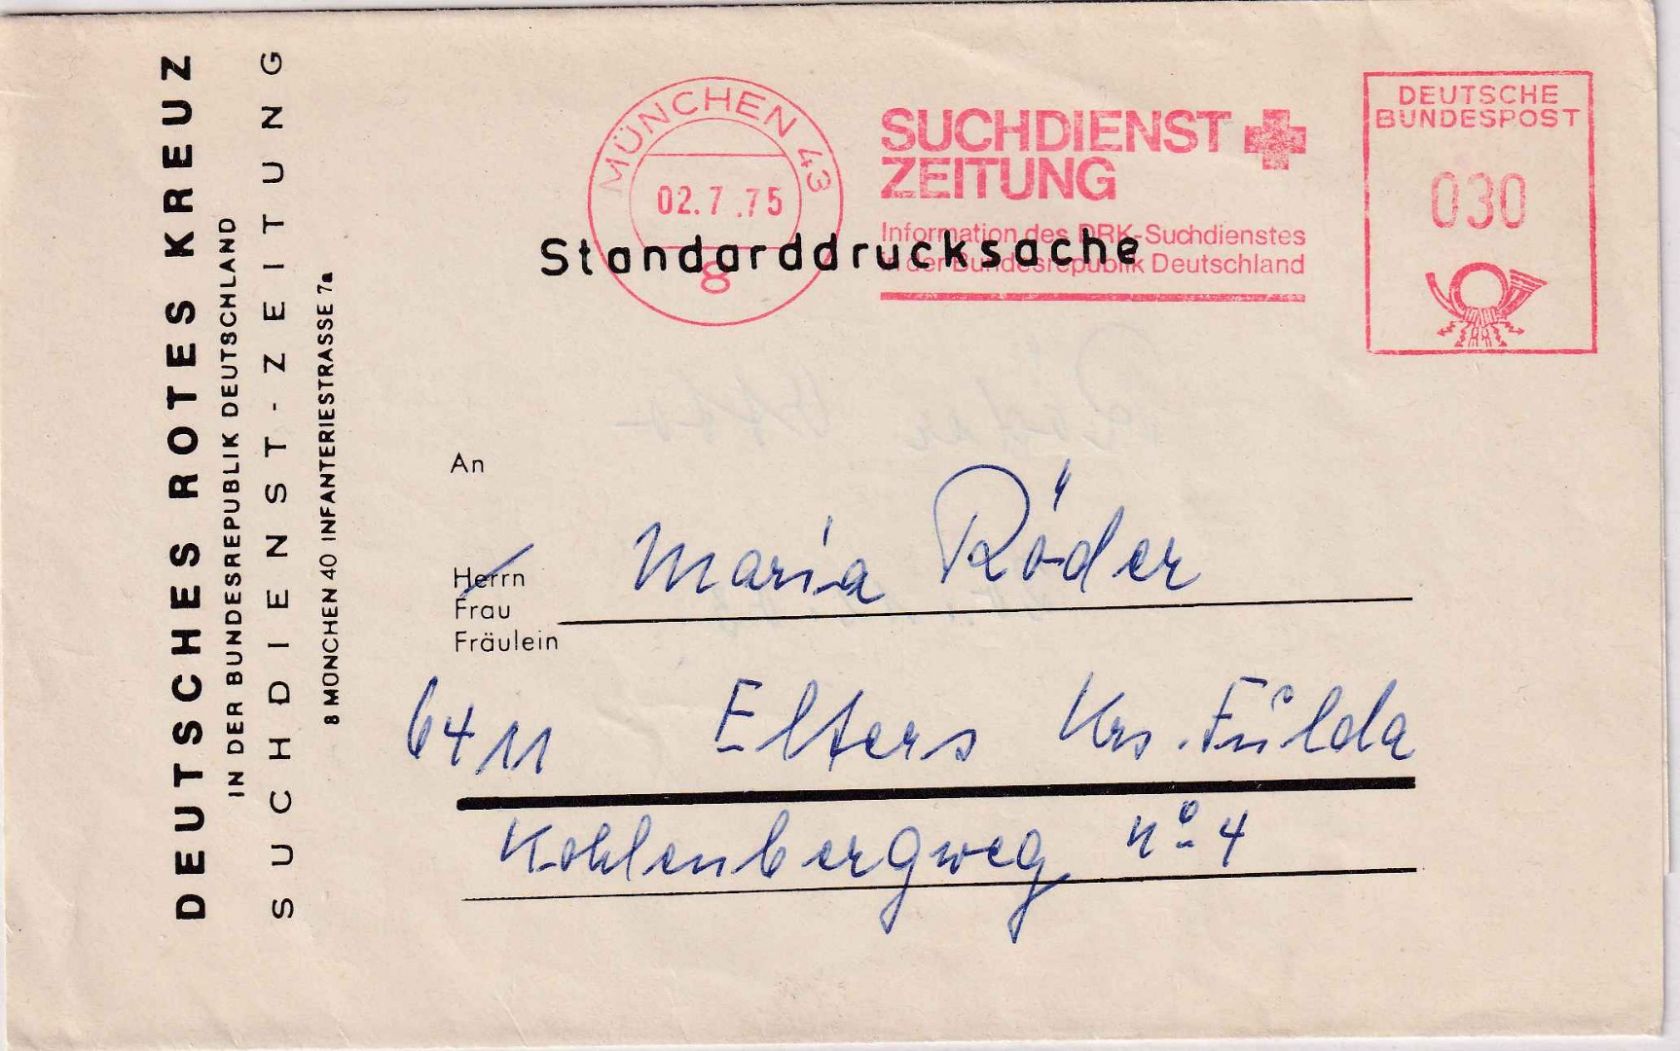 DEUTSCHES ROTES KREUZ
IN DER BUNDESREPUBLIK DEUTSCHLAND
SUCHDIENST-ZEITUNG
8 MÜNCHEN 40 INFANTERIESTRASSE 7a
MÜNCHEN 43
02.7.75
8
SUCHDIENST
ZEITUNG
Information des DRK-Suchdienstes
in der Bundesrepublik Deutschland
DEUTSCHE
BUNDESPOST
030
Standarddrucksache
An
Herrn
Frau
Fräulein
Maria Röder
6411 Elters Krs. Fulda
Kohlenbergweg No 4